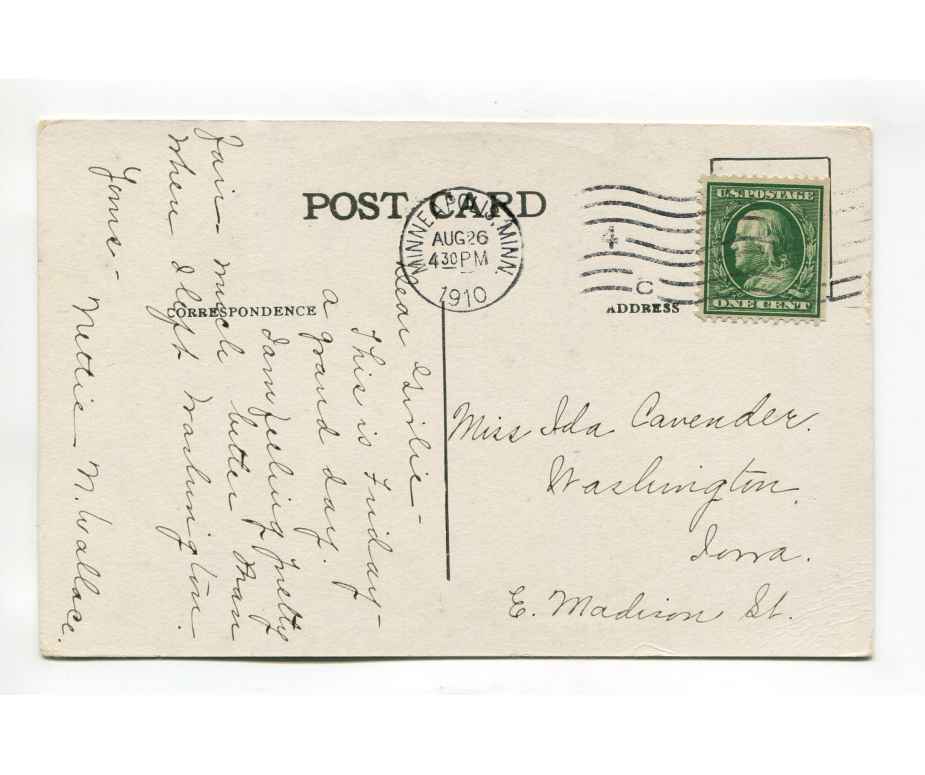 POST CARD
MINNEAPOLIS, MINN.
AUG 26
4 30 PM
1910
4
C
U.S. POSTAGE
ONE CENT
CORRESPONDENCE
ADDRESS
Dear
This is Friday –
a grand day.
I am feeling pretty
fair – much better than
when I left Washington.
Yours –
Nettie M. Wallace.
Miss Ida Cavender.
Washington,
Iowa.
E. Madison St.